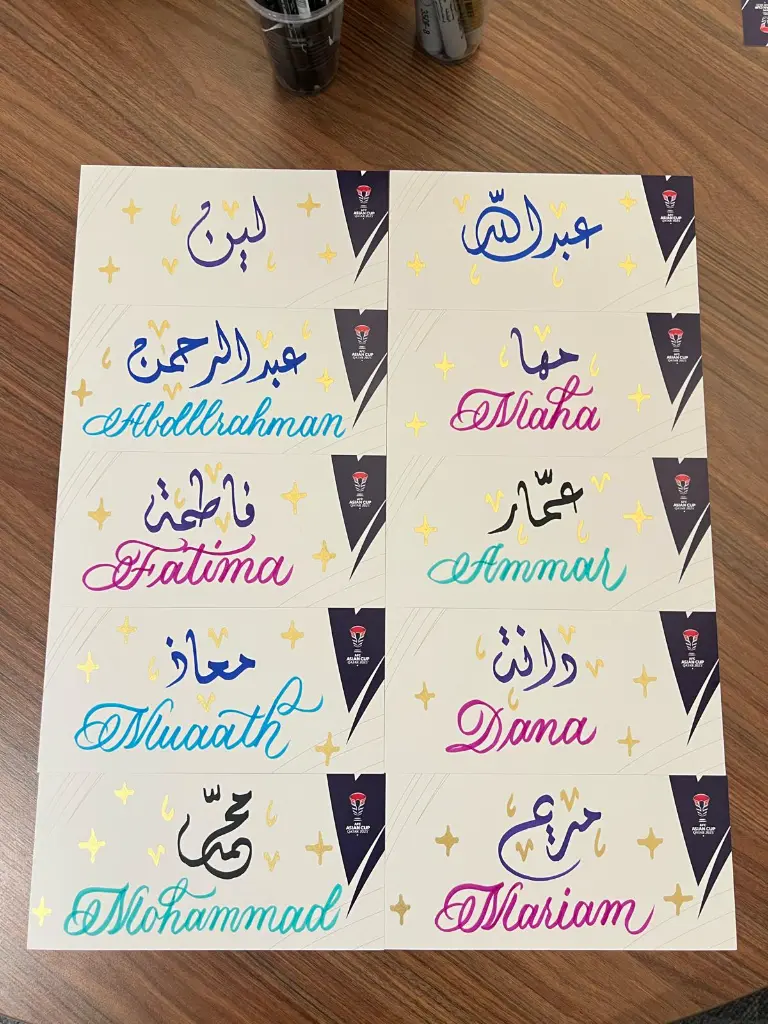 لين
AFC
ASIAN CUP
QATAR 2023
عبدالله
AFC
ASIAN CUP
QATAR 2023
عبدالرحمن
Abdllrahman
AFC
ASIAN CUP
QATAR 2023
مها
Maha
AFC
ASIAN CUP
QATAR 2023
فاطمة
Fatima
AFC
ASIAN CUP
QATAR 2023
عمّار
Ammar
AFC
ASIAN CUP
QATAR 2023
معاذ
Muaath
AFC
ASIAN CUP
QATAR 2023
دانة
Dana
AFC
ASIAN CUP
QATAR 2023
محمّد
Mohammad
AFC
ASIAN CUP
QATAR 2023
مريم
Mariam
AFC
ASIAN CUP
QATAR 2023